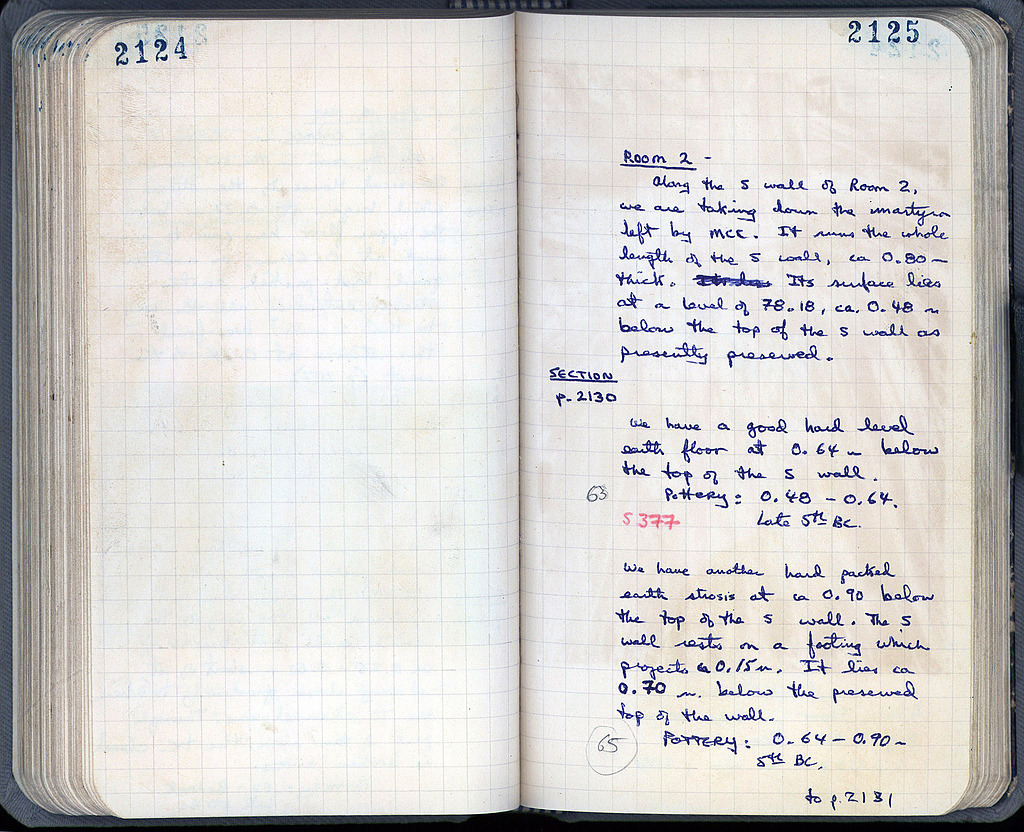 2124
2125
ROOM 2 -
Along the S wall of Room 2,
we are taking down the martyra
left by MCC. It runs the whole
length of the S wall, ca 0.80 m
thick. Its surface lies
at a level of 78.18, ca. 0.48 m
below the top of the S wall as
presently preserved.
SECTION
p. 2130
We have a good hard level
earth floor at 0.64 m below
the top of the S wall.
63 Pottery: 0.48 - 0.64.
S 377 Late 5th BC.
We have another hard packed
earth strosis at ca 0.90 below
the top of the S wall. The S
wall rests on a footing which
projects ca 0.15 m. It lies ca
0.70 m. below the preserved
top of the wall.
65 POTTERY: 0.64 - 0.90 m
5th BC.
to p. 2131